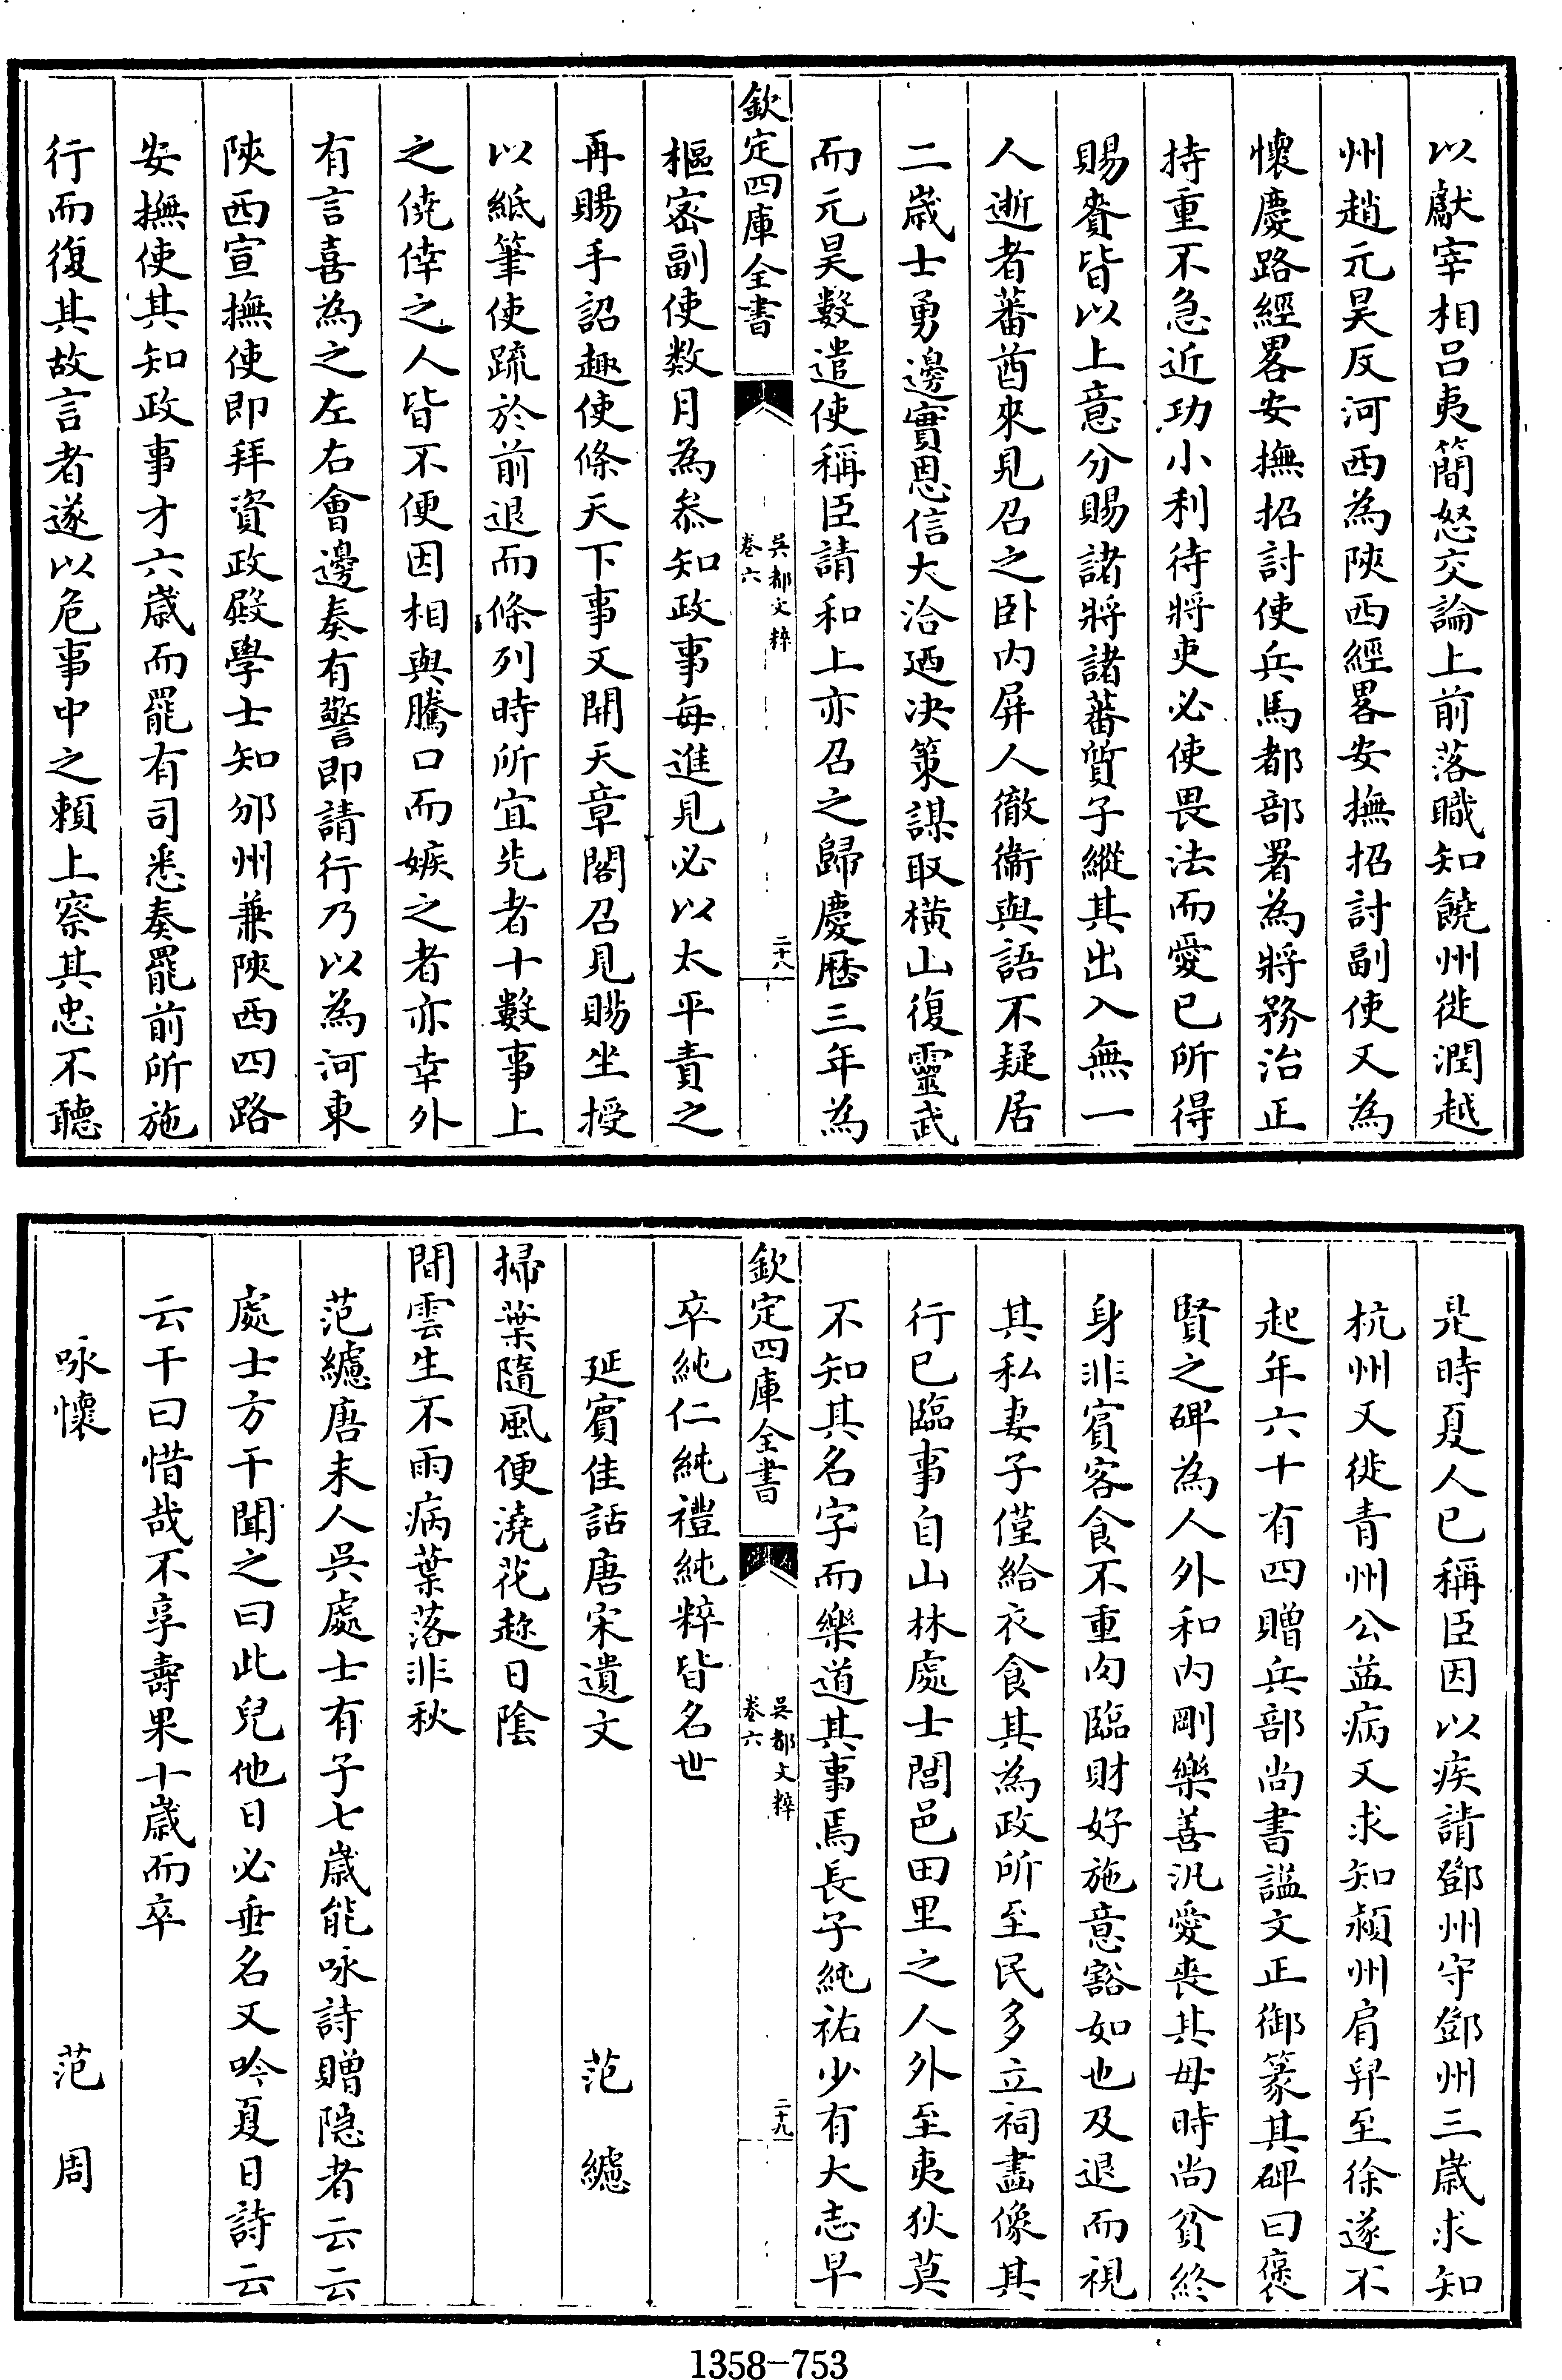 以獻宰相吕夷簡怒交論上前落職知饒州徙潤越
州趙元昊反河西為陜西經畧安撫招討副使又為
懷慶路經畧安撫招討使兵馬都部署為將務治正
持重不急近功小利待將吏必使畏法而愛已所得
賜賚皆以上意分賜諸將諸蕃質子縱其出入無一
人逝者蕃酋來見召之卧内屏人徹衞與語不疑居
二歲士勇邊實恩信大洽廼决策謀取横山復靈武
而元昊數遣使稱臣請和上亦召之歸慶歷三年為
欽定四庫全書
吳都文粹
卷六
二十八
樞密副使数月為叅知政事每進見必以太平責之
再賜手詔趣使條天下事又開天章閣召見賜坐授
以紙筆使䟽於前退而條列時所宜先者十數事上
之僥倖之人皆不便因相與騰口而嫉之者亦幸外
有言喜為之左右會邊奏有警即請行乃以為河東
陜西宣撫使即拜資政殿學士知邠州兼陜西四路
安撫使其知政事才六歲而罷有司悉奏罷前所施
行而復其故言者遂以危事中之賴上察其忠不聽
是時夏人已稱臣因以疾請鄧州守鄧州三歲求知
杭州又徙青州公益病又求知潁州肩舁至徐遂不
起年六十有四贈兵部尚書諡文正御篆其碑曰褒
賢之碑為人外和内剛樂善汎愛喪其母時尚貧終
身非賓客食不重肉臨財好施意豁如也及退而視
其私妻子僅給衣食其為政所至民多立祠畫像其
行已臨事自山林處士閭邑田里之人外至夷狄莫
不知其名字而樂道其事焉長子純祐少有大志早
欽定四庫全書
吳都文粹
卷六
二十九
卒純仁純禮純粹皆名世
延賓佳話唐宋遺文 范纑
掃葉隨風便澆花趂日陰
閒雲生不雨病葉落非秋
范纑唐末人吳處士有子七歲能咏詩贈隠者云云
處士方干聞之曰此兒他日必垂名又吟夏日詩云
云干曰惜哉不享壽果十歲而卒
咏懷 范周
1358-753